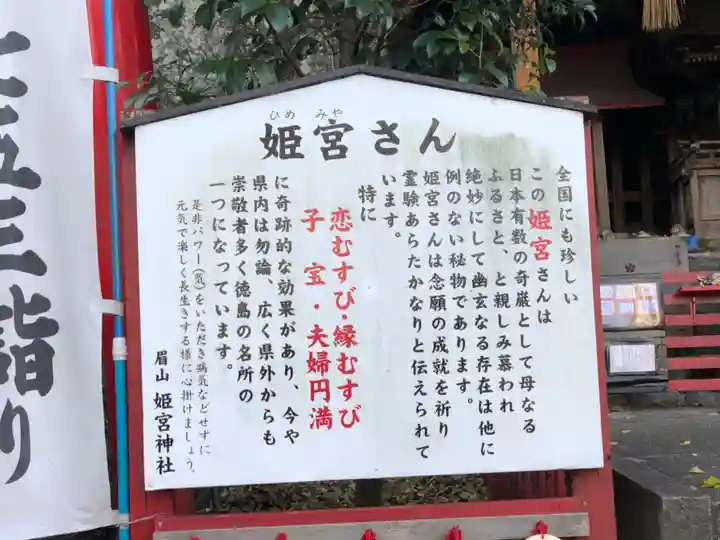 七五三詣り
姫宮さん
ひめ みや
全国にも珍しい
この姫宮さんは
日本有数の奇厳として母なる
ふるさと、と親しみ慕われ
絶妙にして幽玄なる存在は他に
例のない秘物であります。
姫宮さんは念願の成就を祈り
霊験あらたかなりと伝えられて
います。
特に
恋むすび・縁むすび
子宝・夫婦円満
に奇跡的な効果があり、今や
県内は勿論、広く県外からも
崇敬者多く徳島の名所の
一つになっています。
是非パワー(気)をいただき病気などせずに
元気で楽しく長生きする様に心掛けましょう。
眉山 姫宮神社